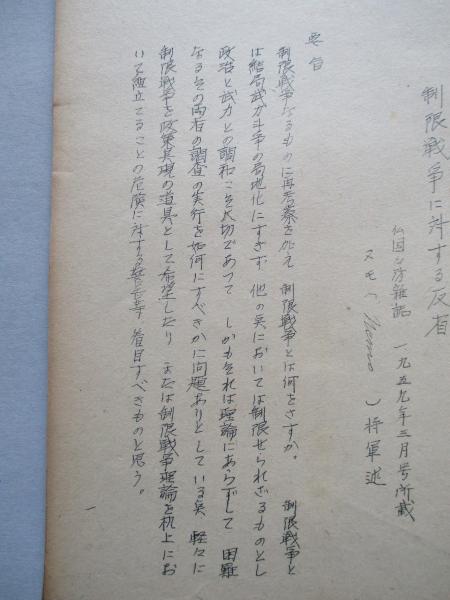 制限戦争に対する反省
仏国々防雑誌 一九五九年三月号所載
スモヘ Nemo )将軍述
要旨
制限戦争なるものに再考察を加え 制限戦争とは何をさすか。 制限戦争と
は結局武力斗争の局地化にすぎず 他の点においては制限せられざるものとし
政治と武力との調和こそ大切であって しかもそれは理論にあらずして 困難
なるその両者の調査の実行を如何にすべきかに問題ありとしている点 軽々に
制限戦争を政策具現の道具として希望したり または制限戦争理論を机上にお
いて組立てることの危険に対する警告等 着目すべきものと思う。
一